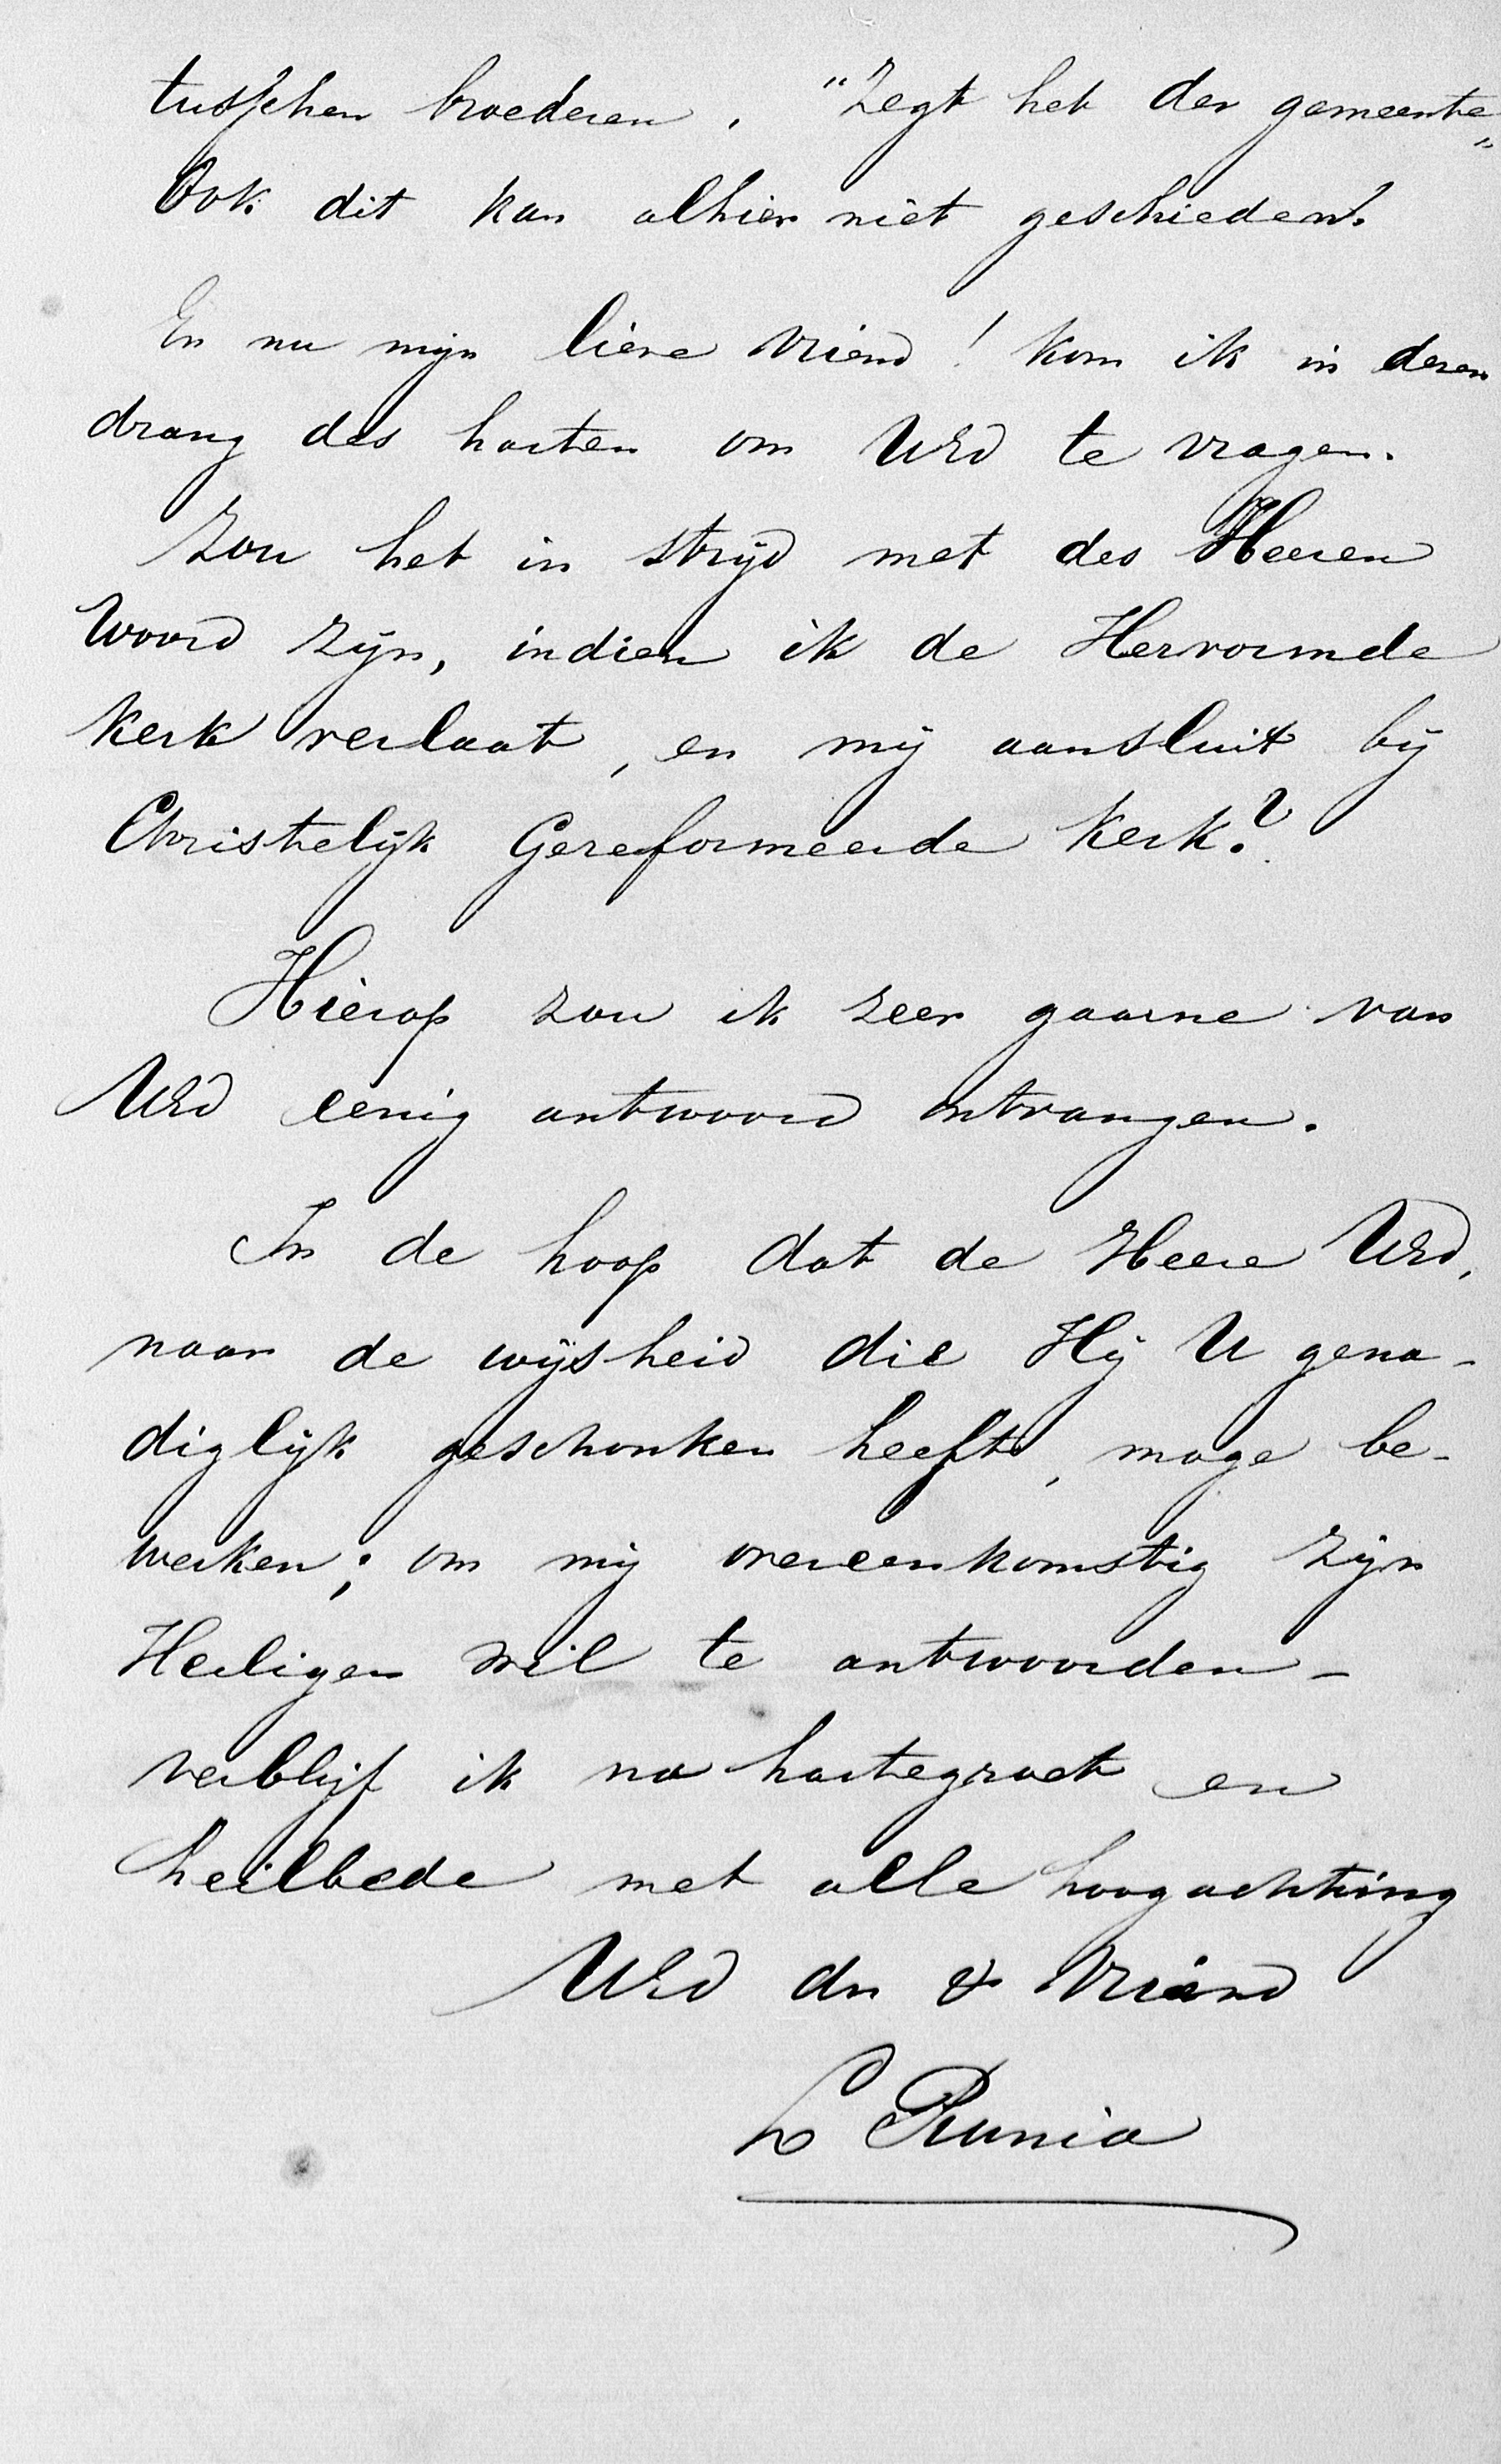 tusschen broederen. "Zegt het der gemeente"
Ook dit kan alhier niet geschieden.
En nu mijn lieve vriend! kom ik in dezen
drang des harten om UEd te vragen.
Zou het in strijd met des Heeren
Woord zijn, indien ik de Hervormde
kerk verlaat, en mij aansluit bij
Christelijk Gereformeerde kerk?
Hierop zou ik zeer gaarne van
UEd eenig antwoord ontvangen.
In de hoop dat de Heere UEd,
naar de wijsheid die Hij U gena-
diglijk geschonken heeft, moge be-
werken; om mij overeenkomstig zijn
Heiligen wil te antwoorden -
verblijf ik na hartegroet en
heilbede met alle hoogachting
UEd dn & Vriend
L Runia